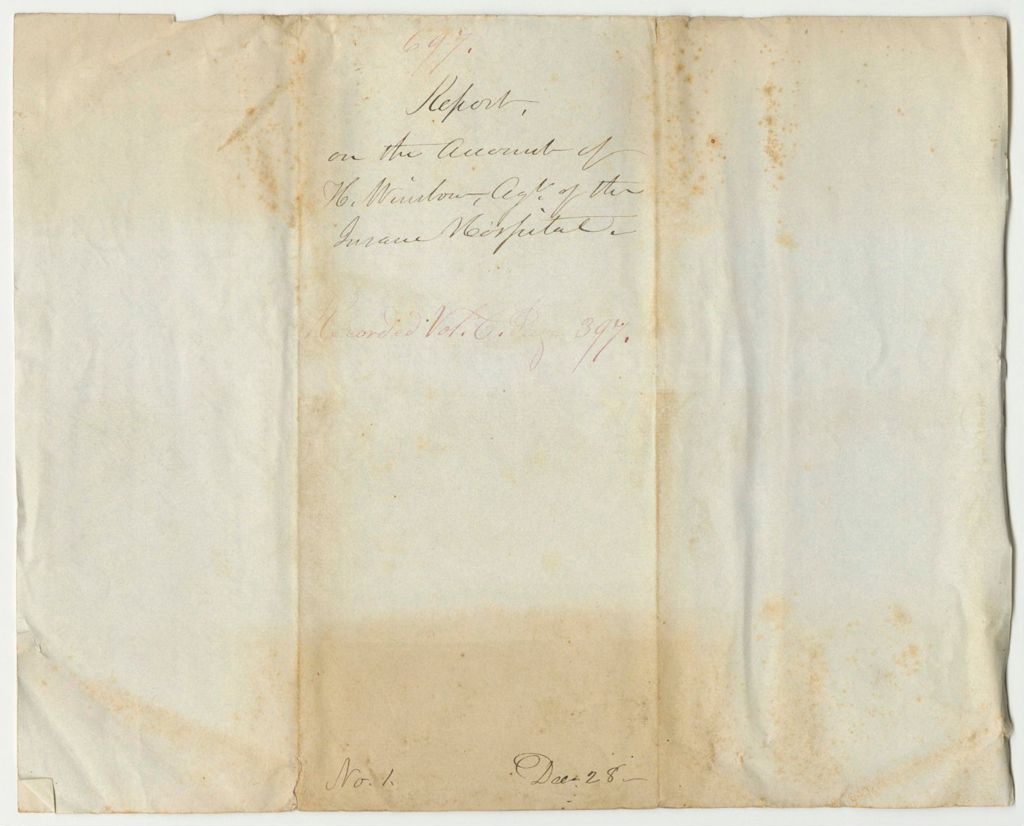 697.
Report,
on the Account of
H. Winslow, Agt. of the
Insane Hospital.
Recorded Vol. 6. Page 397.
No. 1. Dec. 28